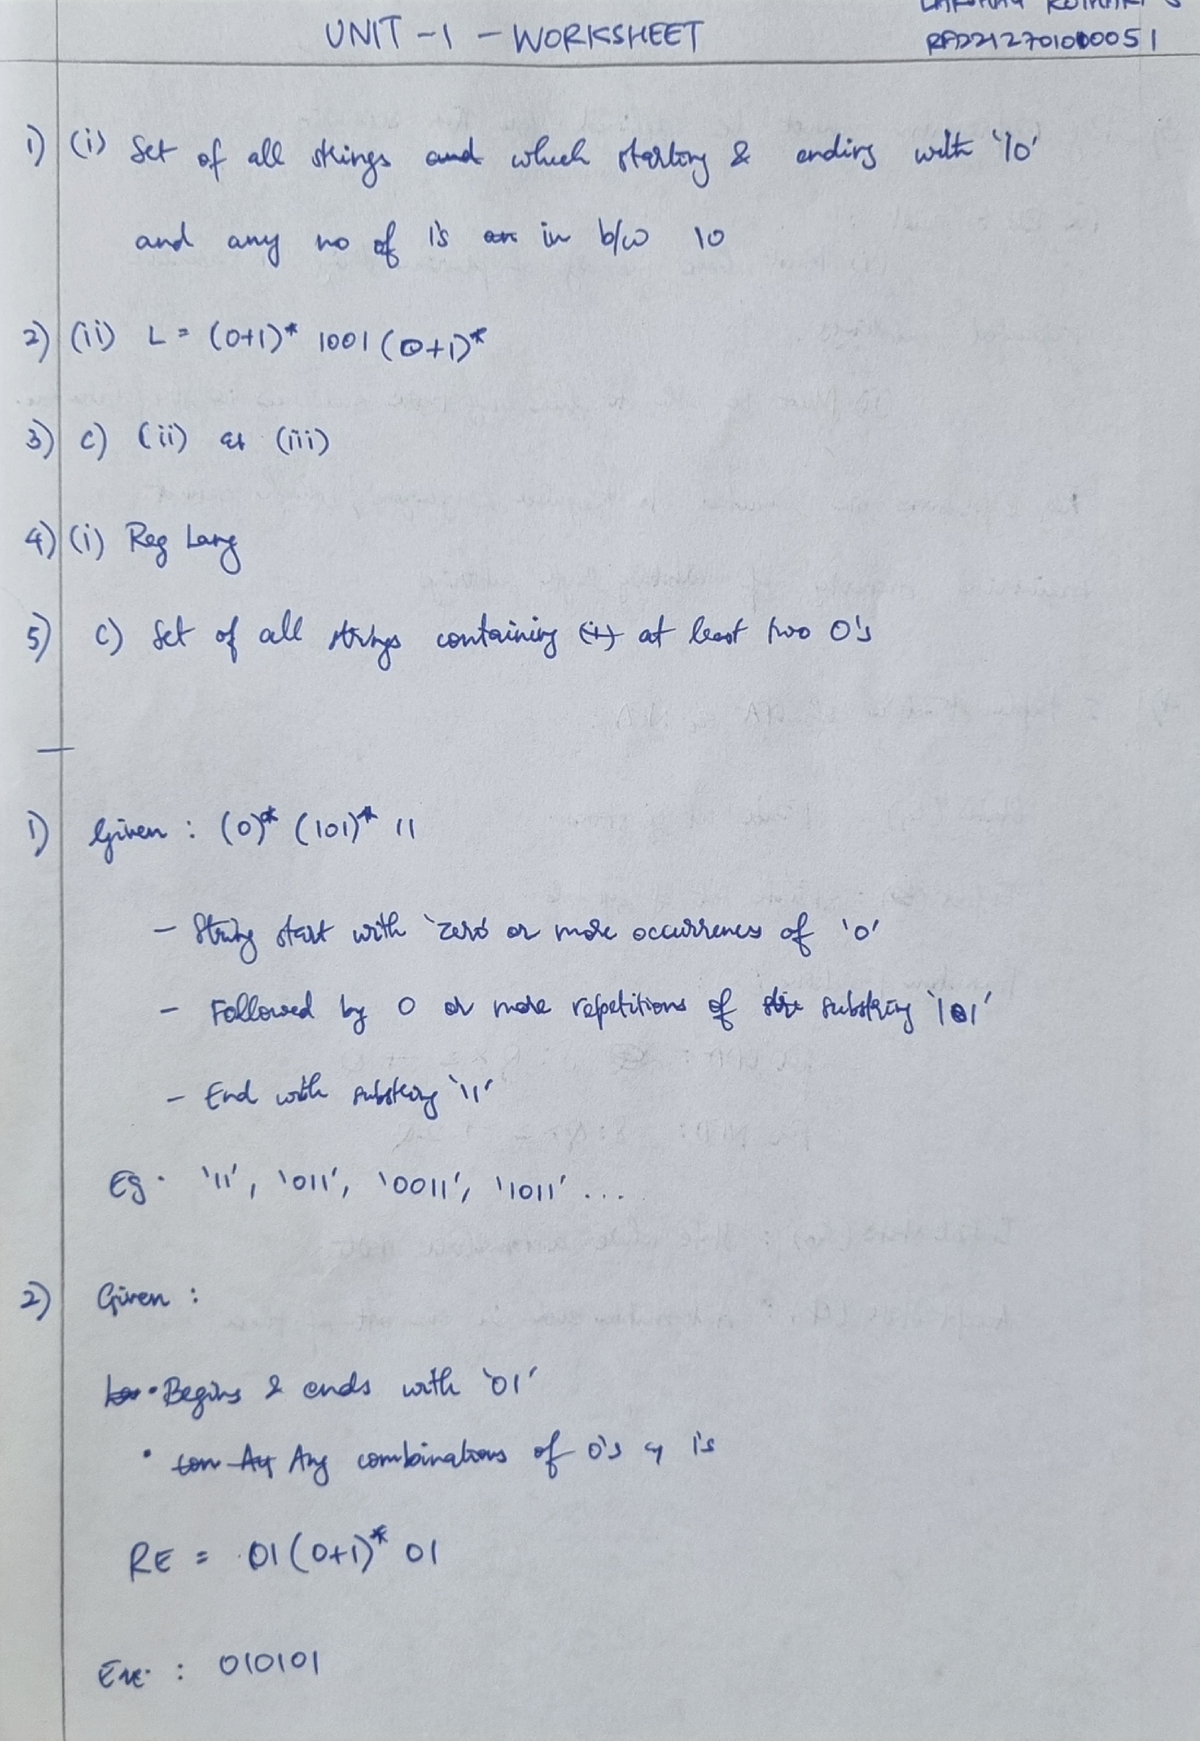 UNIT - 1 - WORKSHEET
1) (i) Set of all strings and which starting & ending with '10'
and any no of 1's are in b/w 10
2) (ii) L = (0+1)* 1001 (0+1)*
3) c) (ii) & (iii)
4) (i) Reg Lang
5) c) Set of all strings containing (i) at least two 0's
1) Given : (0)* (101)* 11
- String start with 'zero' or more occurrences of '0'
- Followed by 0 or more repetitions of stri substring '101'
- End with substring '11'
Eg. '11', '011', '0011', '1011' ...
2) Given :
• Begins & ends with '01'
• con Any Any combinations of 0's & 1's
RE = 01 (0+1)* 01
Ex. : 010101